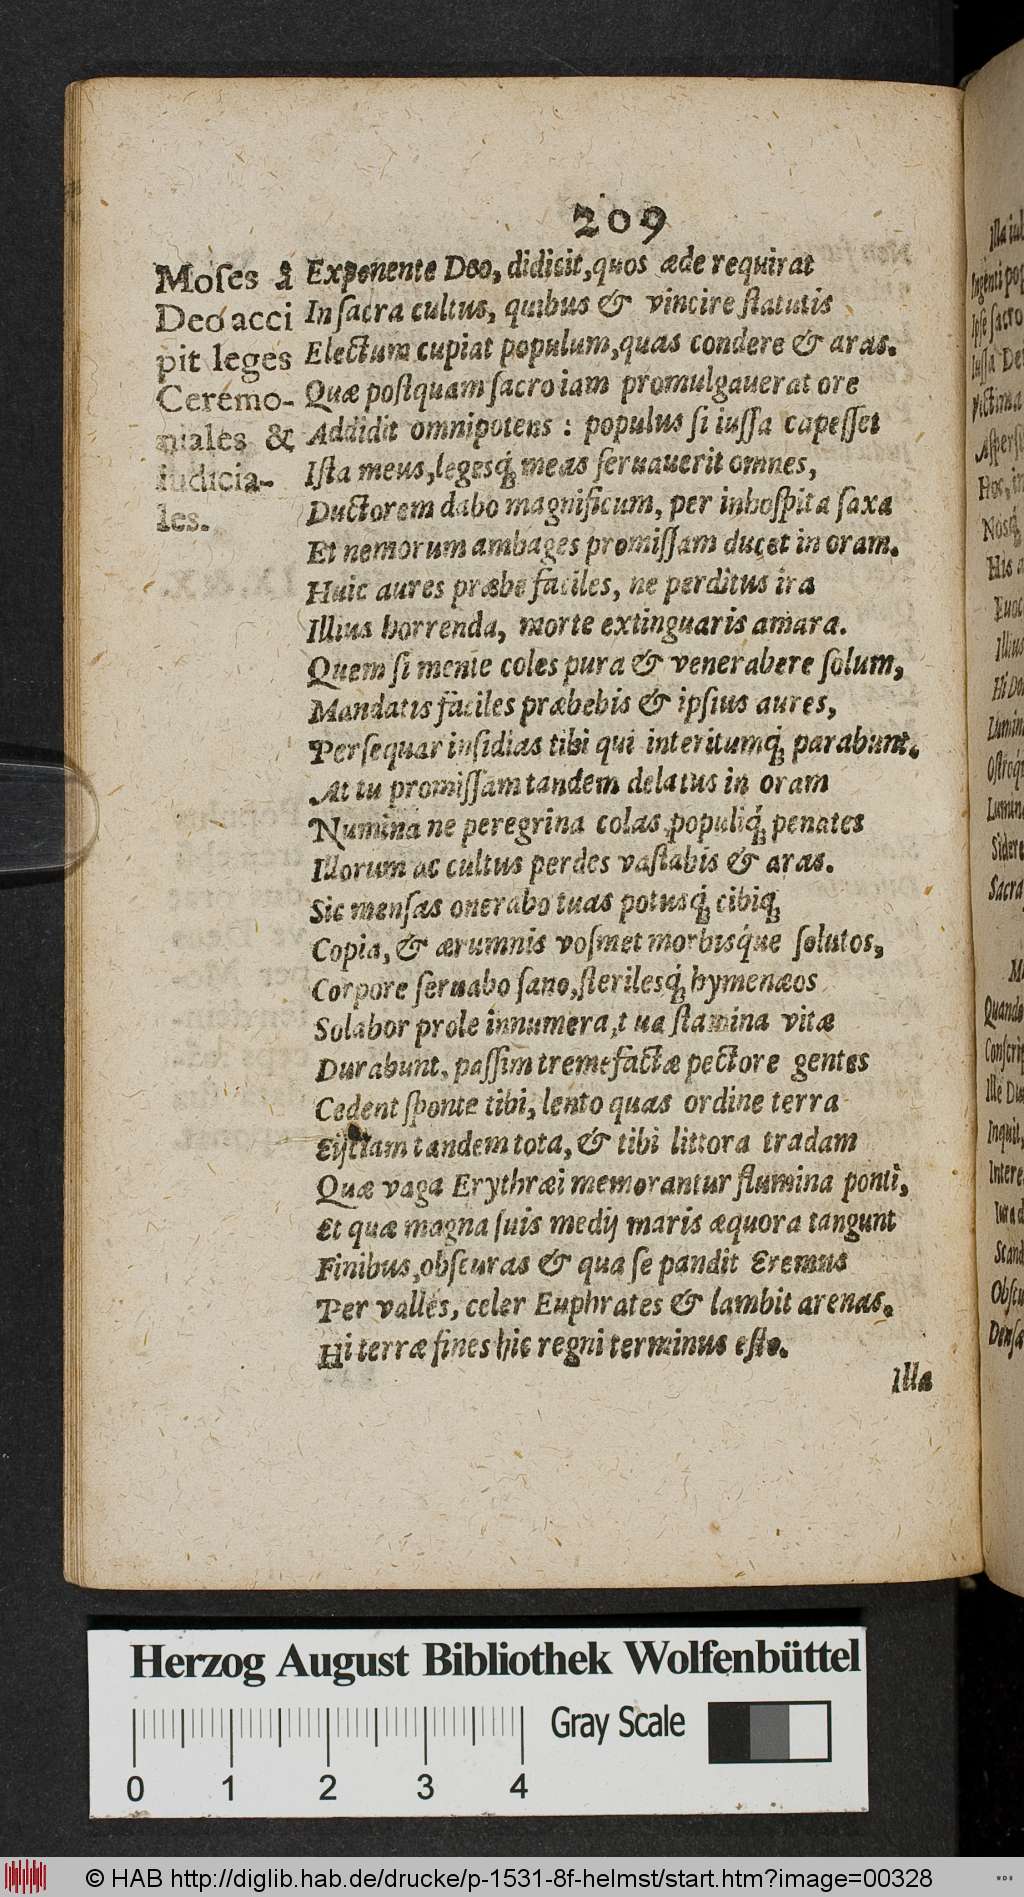 209
Moſes à
Deo acci
pit leges
Ceremo-
niales &
iudicia-
les.
Exponente Deo, didicit, quos æde requirat
In ſacra cultus, quibus & vincire ſtatutis
Electum cupiat populum, quas condere & aras.
Quæ poſtquam ſacro iam promulgauerat ore
Addidit omnipotens: populus ſi iuſſa capeſſet
Iſta meus, legesq́; meas ſeruauerit omnes,
Ductorem dabo magnificum, per inhoſpita ſaxa
Et nemorum ambages promiſſam ducet in oram.
Huic aures præbe faciles, ne perditus ira
Illius horrenda, morte extinguaris amara.
Quem ſi mente coles pura & venerabere ſolum,
Mandatis faciles præbebis & ipſius aures,
Perſequar inſidias tibi qui interitumq́; parabunt.
At tu promiſſam tandem delatus in oram
Numina ne peregrina colas, populiq́; penates
Illorum ac cultus perdes vaſtabis & aras.
Sic menſas onerabo tuas potusq́; cibiq́;
Copia, & ærumnis voſmet morbisq́ue ſolutos,
Corpore ſeruabo ſano, ſterilesq́; hymenæos
Solabor prole innumera, tua ſtamina vitæ
Durabunt, paſſim tremefactæ pectore gentes
Cedent ſponte tibi, lento quas ordine terra
Eijciam tandem tota, & tibi littora tradam
Quæ vaga Erythræi memorantur flumina ponti,
Et quæ magna ſuis medij maris æquora tangunt
Finibus, obſcuras & qua ſe pandit Eremus
Per valles, celer Euphrates & lambit arenas.
Hi terræ fines hic regni terminus eſto.
Illa
Herzog August Bibliothek Wolfenbüttel
Gray Scale
0 1 2 3 4
© HAB http://diglib.hab.de/drucke/p-1531-8f-helmst/start.htm?image=00328